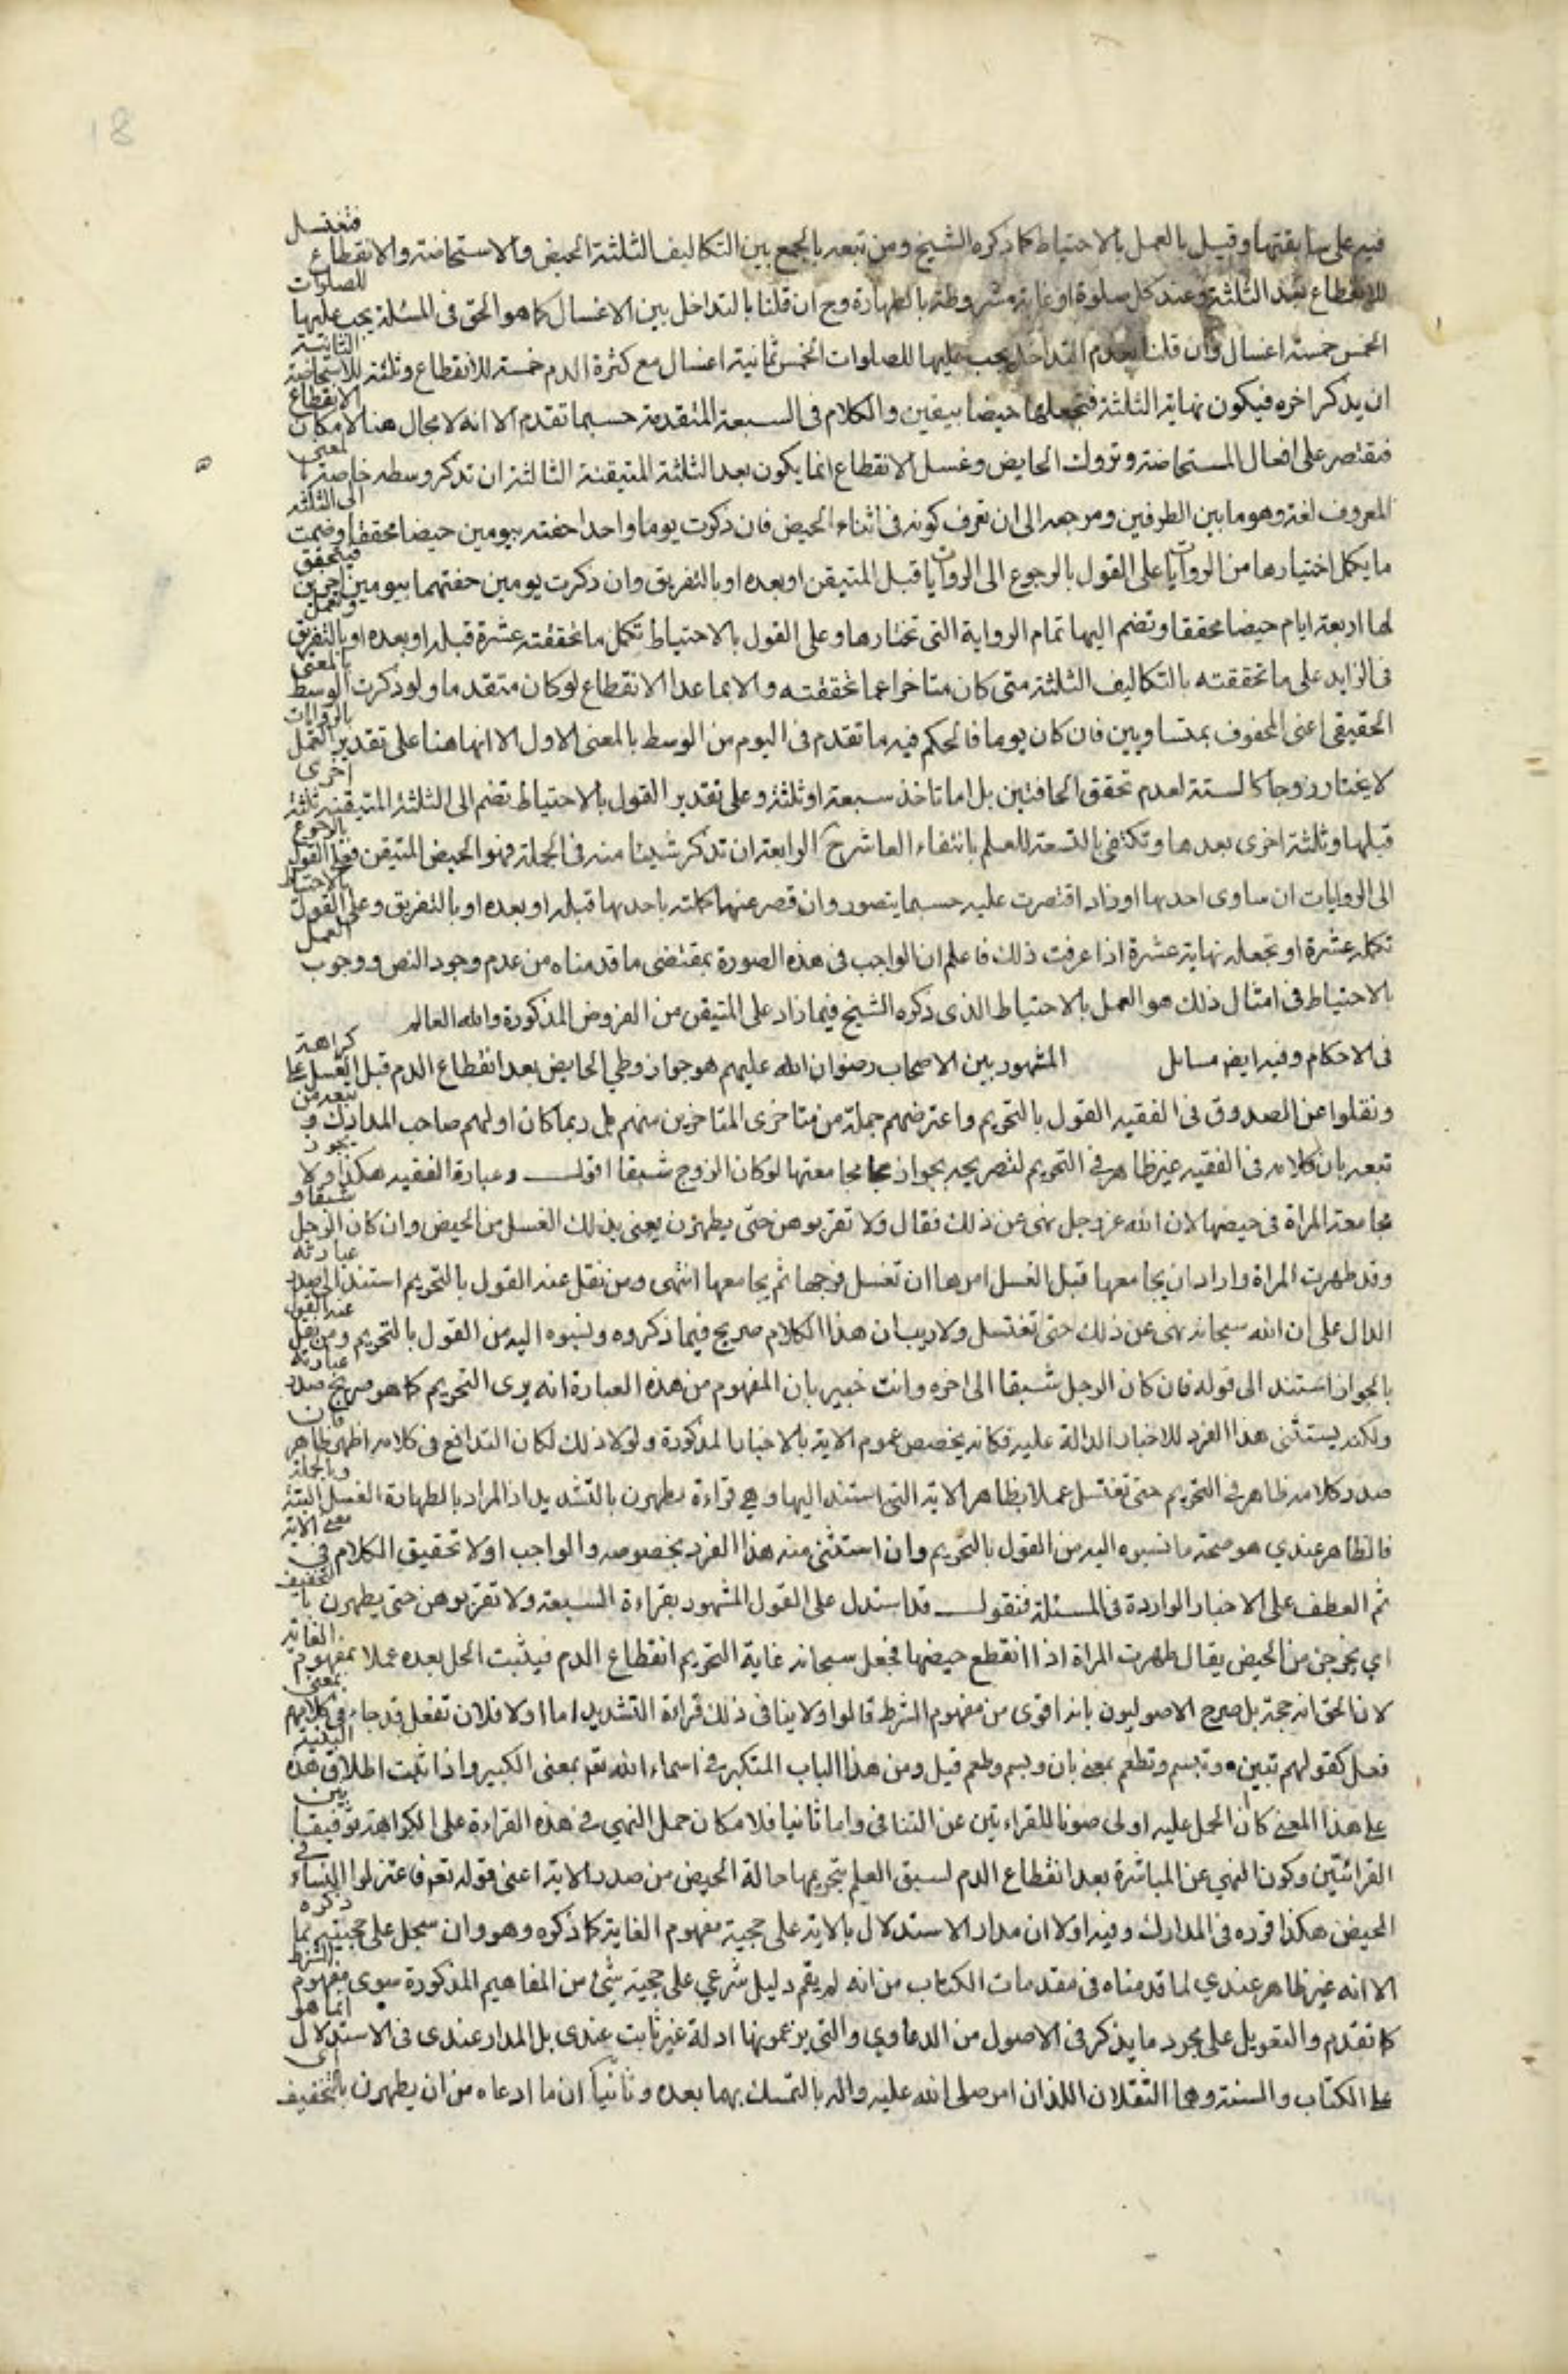 18
فيه على سابقتها وقيل بالعمل بالاحتياط كما ذكره الشيخ ومن تبعه بالجمع بين التكاليف الثلثة الحيض والاستحاضة والانقطاع فتغتسل
للانقطاع بعد الثلثة وعند كل صلوة او غاية مشروطة بالطهارة وح ان قلنا بالتداخل بين الاغسال كما هو الحق في المسئلة يجب عليها للصلوات
الخمس خمسة اغسال وان قلنا بعدم التداخل يجب عليها للصلوات الخمس ثمانية اغسال مع كثرة الدم خمسة للانقطاع وثلثة للاستحاضة الثانية
ان يذكر اخره فيكون نهاية الثلثة فتجعلها حيضا بيقين والكلام في السبعة المتقدمة حسبما تقدم الا انه لا مجال هنا لامكان الانقطاع
فتقتصر على افعال المستحاضة وتروك الحايض وغسل الانقطاع انما يكون بعد الثلثة المتيقنة الثالثة ان تذكر وسطه خاصة بالمعنى
المعروف لغة وهو ما بين الطرفين ومرجعه الى ان تعرف كونه في اثناء الحيض فان ذكرت يوما واحدا حفته بيومين حيضا محققا وضمت الى الثلثة
ما يكمل اختيارها من الروايات على القول بالرجوع الى الروايات قبل المتيقن او بعده او بالتفريق وان ذكرت يومين حفتهما بيومين اخرين فيتحقق
لها اربعة ايام حيضا محققا وتضم اليها تمام الرواية التي تختارها وعلى القول بالاحتياط تكمل ما تحققته عشرة قبله او بعده او بالتفريق وتعمل
في الزايد على ما تحققته بالتكاليف الثلثة متى كان متاخرا عما تحققته والا بما عدا الانقطاع لو كان متقدما ولو ذكرت الوسط بالمعنى
الحقيقي اعني المحفوف بمتساويين فان كان يوما فالحكم فيه ما تقدم في اليوم من الوسط بالمعنى الاول الا انها هنا على تقدير العمل بالروايات
لا يختار زوجا كالستة لعدم تحقق الحافتين بل اما تاخذ سبعة او ثلثة وعلى تقدير القول بالاحتياط تضم الى الثلثة المتيقنة ثلثة اخرى
قبلها وثلثة اخرى بعدها وتكتفي بالتسعة للعلم بانتفاء العاشر ح الرابعة ان تذكر شيئا منه في الجملة فهو الحيض المتيقن فعلى القول بالرجوع
الى الروايات ان ساوى احديها او زاد اقتصرت عليه حسبما يتصور وان قصر عنها كملته باحديها قبله او بعده او بالتفريق وعلى القول بالاحتياط
تكمله عشرة او تجعله نهاية عشرة اذا عرفت ذلك فاعلم ان الواجب في هذه الصورة بمقتضى ما قدمناه من عدم وجود النص ووجوب العمل
بالاحتياط في امثال ذلك هو العمل بالاحتياط الذي ذكره الشيخ فيما زاد على المتيقن من الفروض المذكورة والله العالم
في الاحكام وفيه ايض مسائل المشهور بين الاصحاب رضوان الله عليهم هو جواز وطي الحايض بعد انقطاع الدم قبل الغسل على كراهة
ونقلوا عن الصدوق في الفقيه القول بالتحريم واعترضهم جملة من متاخري المتاخرين منهم بل ربما كان اولهم صاحب المدارك و تبعه من
تبعه بان كلامه في الفقيه غير ظاهر في التحريم لتصريحه بجواز مجامعتها لو كان الزوج شبقا اقول وعبارة الفقيه هكذا ولا يجوز
مجامعة المراة في حيضها لان الله عز وجل نهى عن ذلك فقال ولا تقربوهن حتى يطهرن يعني بذلك الغسل من الحيض وان كان الرجل شبقا و
وقد طهرت المراة واراد ان يجامعها قبل الغسل امرها ان تغسل فرجها ثم يجامعها انتهى ومن نقل عنه القول بالتحريم استند الى صدر عبارته
الدال على ان الله سبحانه نهى عن ذلك حتى تغتسل ولا ريب ان هذا الكلام صريح فيما ذكروه ونسبوه اليه من القول بالتحريم ومن نقل عنه القول
بالجواز استند الى قوله فان كان الرجل شبقا الى اخره وانت خبير بان المفهوم من هذه العبارة انه يرى التحريم كما هو صريح صدر عبارته
ولكنه يستثنى هذا الفرد للاخبار الدالة عليه فكانه يخصص عموم الاية بالاخبار المذكورة ولولا ذلك لكان التدافع في كلامه اظهر ظاهر فان
صدر كلامه ظاهر في التحريم حتى تغتسل عملا بظاهر الاية التي استند اليها وهي قراءة يطهرن بالتشديد اذ المراد بالطهارة الغسل البتة وبالجملة
فالظاهر عندي هو صحة ما نسبوه اليه من القول بالتحريم وان استثنى منه هذا الفرد بخصوصه والواجب اولا تحقيق الكلام في معنى الاية
ثم العطف على الاخبار الواردة في المسئلة فنقول قد استدل على القول المشهور بقراءة السبعة ولا تقربوهن حتى يطهرن بالتخفيف
اي يخرجن من الحيض يقال طهرت المراة اذا انقطع حيضها فجعل سبحانه غاية التحريم انقطاع الدم فيثبت الحل بعده عملا بمفهوم الغاية
لان الحق انه حجة بل صرح الاصوليون بانه اقوى من مفهوم الشرط قالوا ولا ينافي ذلك قراءة التشديد اما اولا فلان تفعل قد جاء في كلامهم بمعنى
فعل كقولهم تبين وتبسم وتطعم بمعنى بان وبسم وطعم قيل ومن هذا الباب المتكبر في اسماء الله تعم بمعنى الكبير واذا ثبت اطلاق هذه البنية
على هذا المعنى كان الحمل عليه اولى صونا للقراءتين عن التنافي واما ثانيا فلامكان حمل النهي في هذه القراءة على الكراهة توفيقا بين
القرائتين وكون النهي عن المباشرة بعد انقطاع الدم لسبق العلم بتحريمها حالة الحيض من صدر الاية اعني قوله تعم فاعتزلوا النساء في
الحيض هكذا قرره في المدارك وفيه اولا ان مدار الاستدلال بالاية على حجية مفهوم الغاية كما ذكره وهو وان سجل على حجيته بما ذكره
الا انه غير ظاهر عندي لما قدمناه في مقدمات الكتاب من انه لم يقم دليل شرعي على حجية شيء من المفاهيم المذكورة سوى مفهوم الشرط
كما تقدم والتعويل على مجرد ما يذكر في الاصول من الدعاوي والتي يزعمونها ادلة غير ثابت عندي بل المدار عندي في الاستدلال انما هو
على الكتاب والسنة وهما الثقلان اللذان امر صلى الله عليه واله بالتمسك بهما بعده وثانيا ان ما ادعاه من ان يطهرن بالتخفيف اي